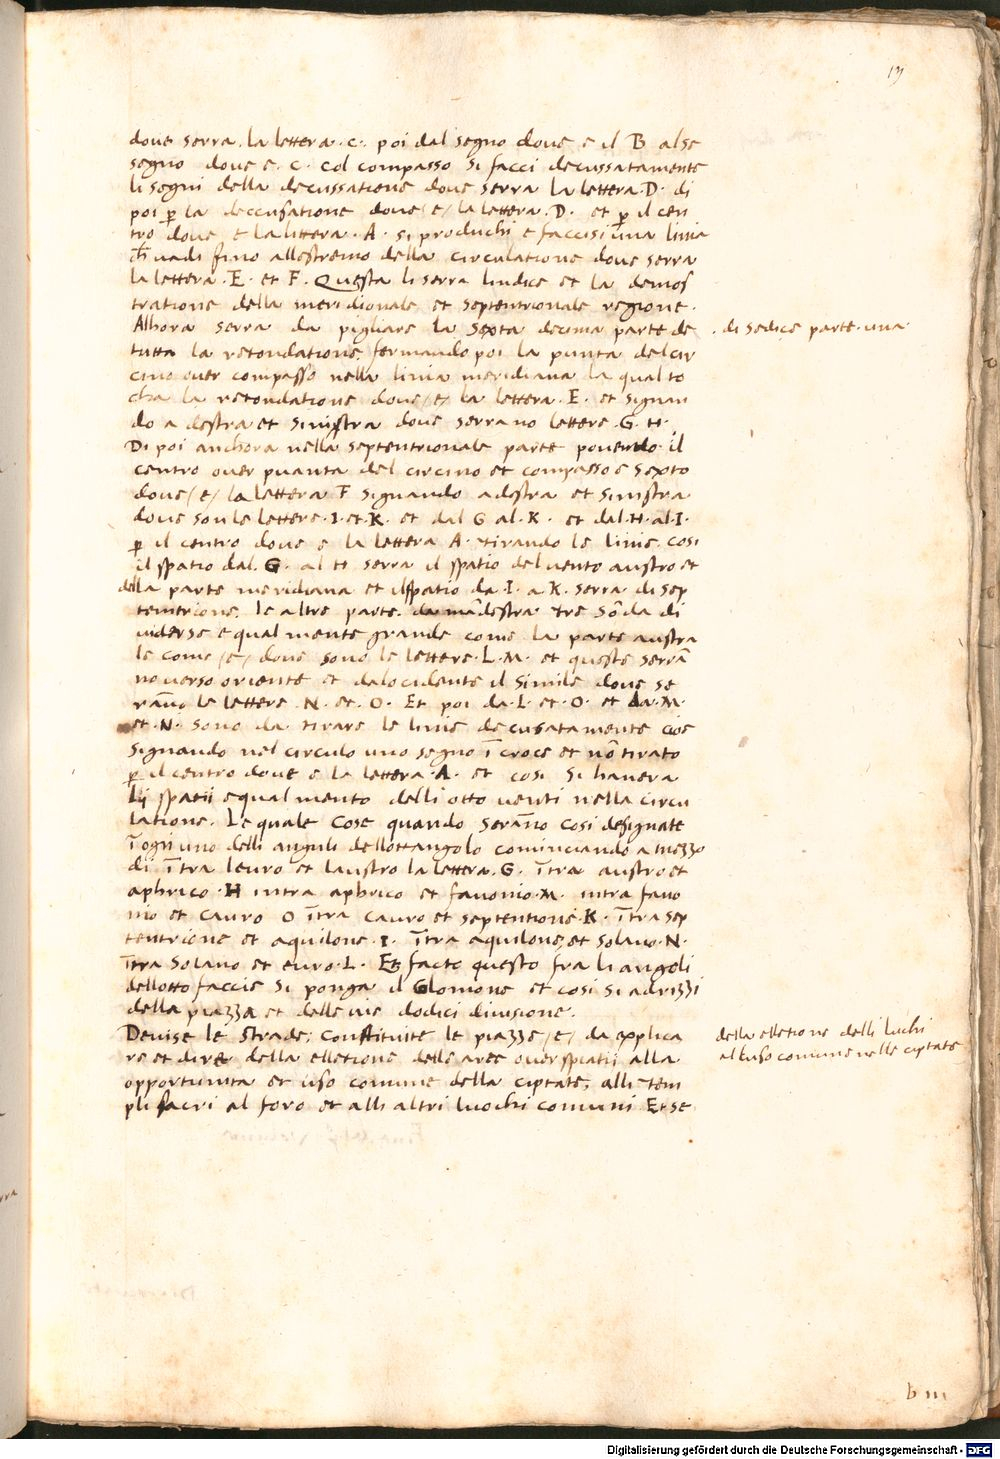 13
doue serra. la lettera .c. poi dal segno doue e il B alse
segno doue e. C. col compasso si facci decussatamente
li segni della decussatione doue serra la lettera .D. di
poi ꝑ la deccusatione doue /e/ la lettera .D. et ꝑ il cen
tro doue e la littera .A. si produchi e faccisi una linia
uadi fino allestremo della circulatione doue serra
la lettera .E. et F. Questa li serra lindice et la demos
tratione della meridionale et septentrionale regione.
Alhora serra da pigliare la sexta decima parte de
. di sedice parte una
tutta la retondatione fermando poi la punta del cir
cino ouer compasso nella linia meridiana la qual to
cha la retondatione doue /e/ la lettera .E. et signan
do a destra et sinistra doue serrano lettere .G. H.
Di poi anchora nella septentrionale parte ponendo il
centro ouer puanta del circino et compasso e sexto
doue /e/ la lettera F signando adestra et sinistra
doue son le lettere .I. et .K. et dal G al .K. et dal .H. al .I.
ꝑ il centro doue e la lettera A. tirando le linie cosi
il spatio dal .G. al H serra il spatio del uento austro et
della parte meridiana et ilspatio da .I. a .K. serra di sep
tentrione. le altre parte. da mādestra tre sōda di
uiderse equalmente grande come la parte austra
le come /e/ doue sono le lettere .L. M. et queste serrā
no uerso oriente et dalocidente il simile doue se
rāno le lettere .N. et .O. Et poi da .L. et .O. et da .M.
et .N. sono da tirare le linie decusatamente cioe
signando nel circulo uno segno ī croce et nō tirato
ꝑ il centro doue e la lettera .A. et cosi si hauera
lij spatii equalmento delli otto uenti nella circu
latione. Le quale cose quando serāno cosi designate
ī ogni uno delli anguli dellottangolo cominciando a mezzo
di ītra leuro et laustro la lettera .G. ītra austro et
aphrico .H intra aphrico et fauonio .M. intra fauo
nio et Cauro O ītra Cauro et septentione .K. ītra sep
tentrione et aquilone .I. ītra aquilone, et solano .N.
ītra Solano et euro .L. Et facto questo fra li angoli
dellotto faccie si ponga il Glomone et cosi si adrizzi
della piazza et delle uie dodici diuisione.
Deuise le strade; Constituite le piazze /e/ da explica
della elletione delli luchi
re et dire della elletione delle aree ouer spiatii alla
al luso comune nelle ciptate
opportunita et uso comune della ciptate; alli tem
pli sacri al foro et alli altri luochi comuni Et se
b iii
Digitalisierung gefördert durch die Deutsche Forschungsgemeinschaft - DFG